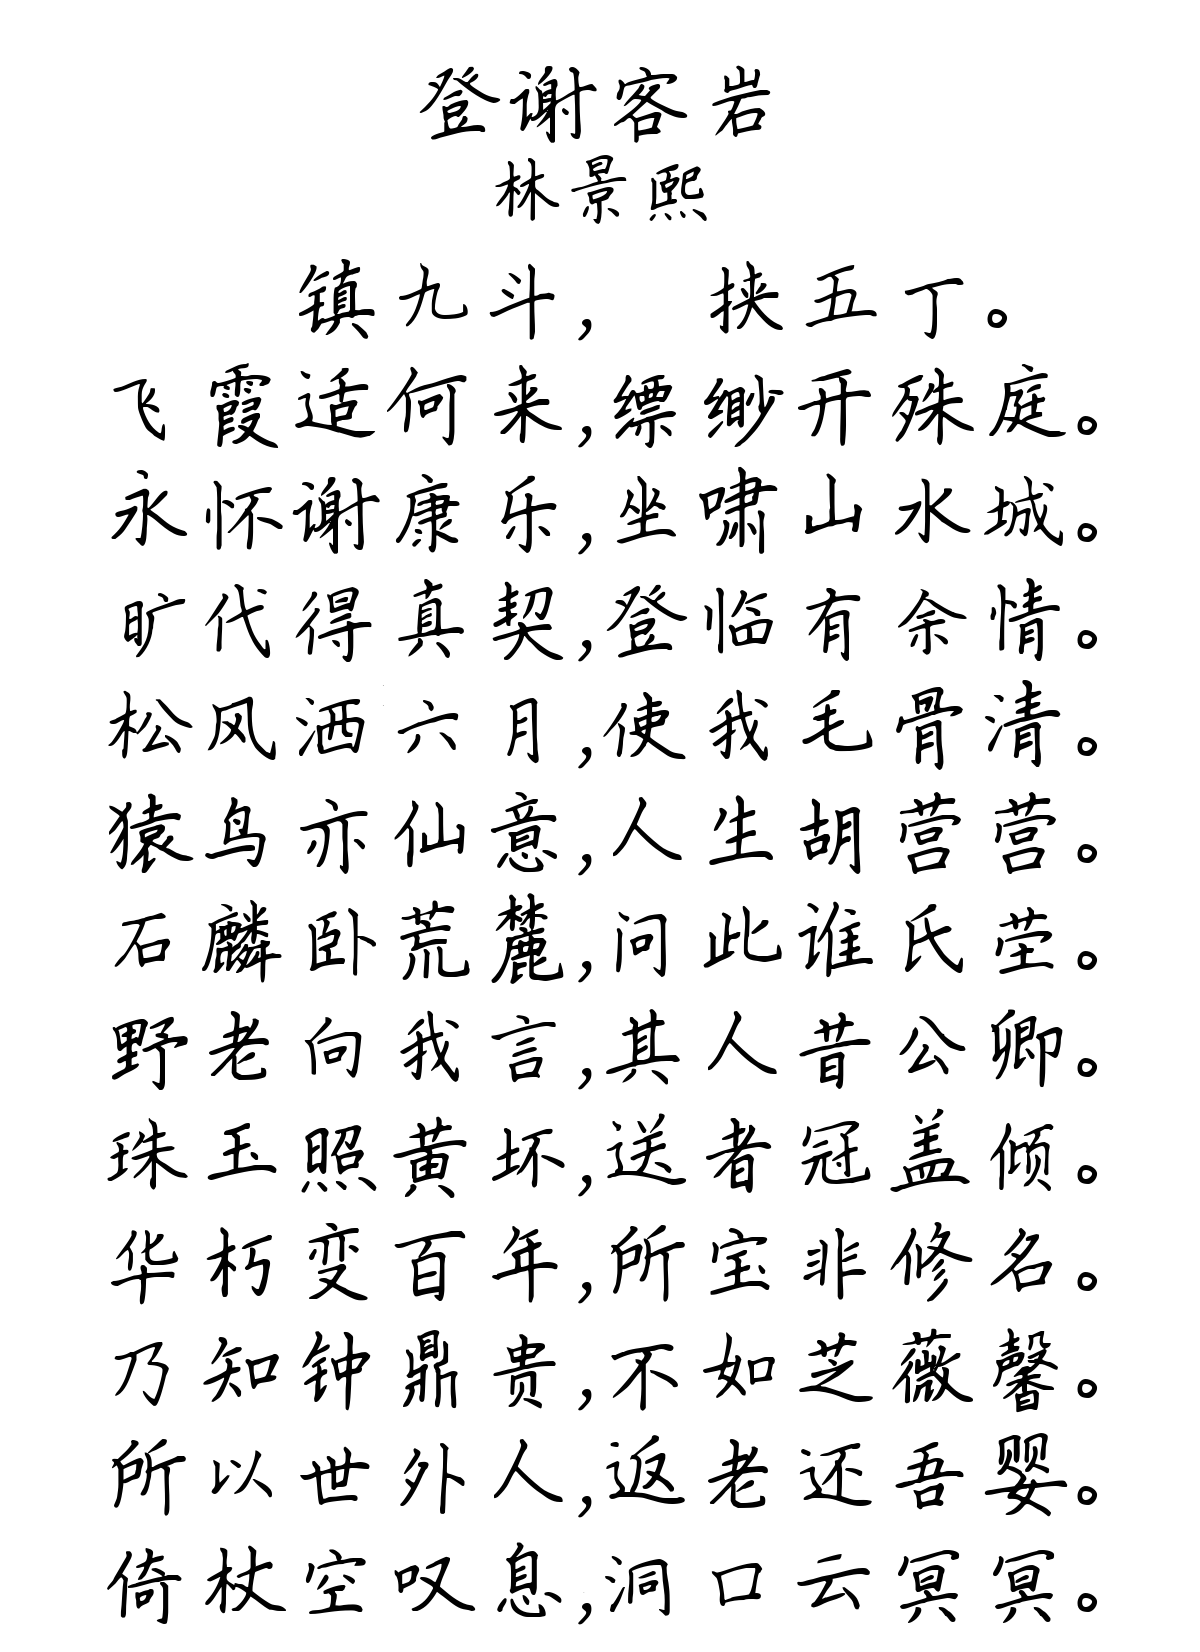 登谢客岩
林景熙
镇九斗,　挟五丁。
飞霞适何来,缥缈开殊庭。
永怀谢康乐,坐啸山水城。
旷代得真契,登临有余情。
松风洒六月,使我毛骨清。
猿鸟亦仙意,人生胡营营。
石麟卧荒麓,问此谁氏茔。
野老向我言,其人昔公卿。
珠玉照黄坏,送者冠盖倾。
华朽变百年,所宝非修名。
乃知钟鼎贵,不如芝薇馨。
所以世外人,返老还吾婴。
倚杖空叹息,洞口云冥冥。